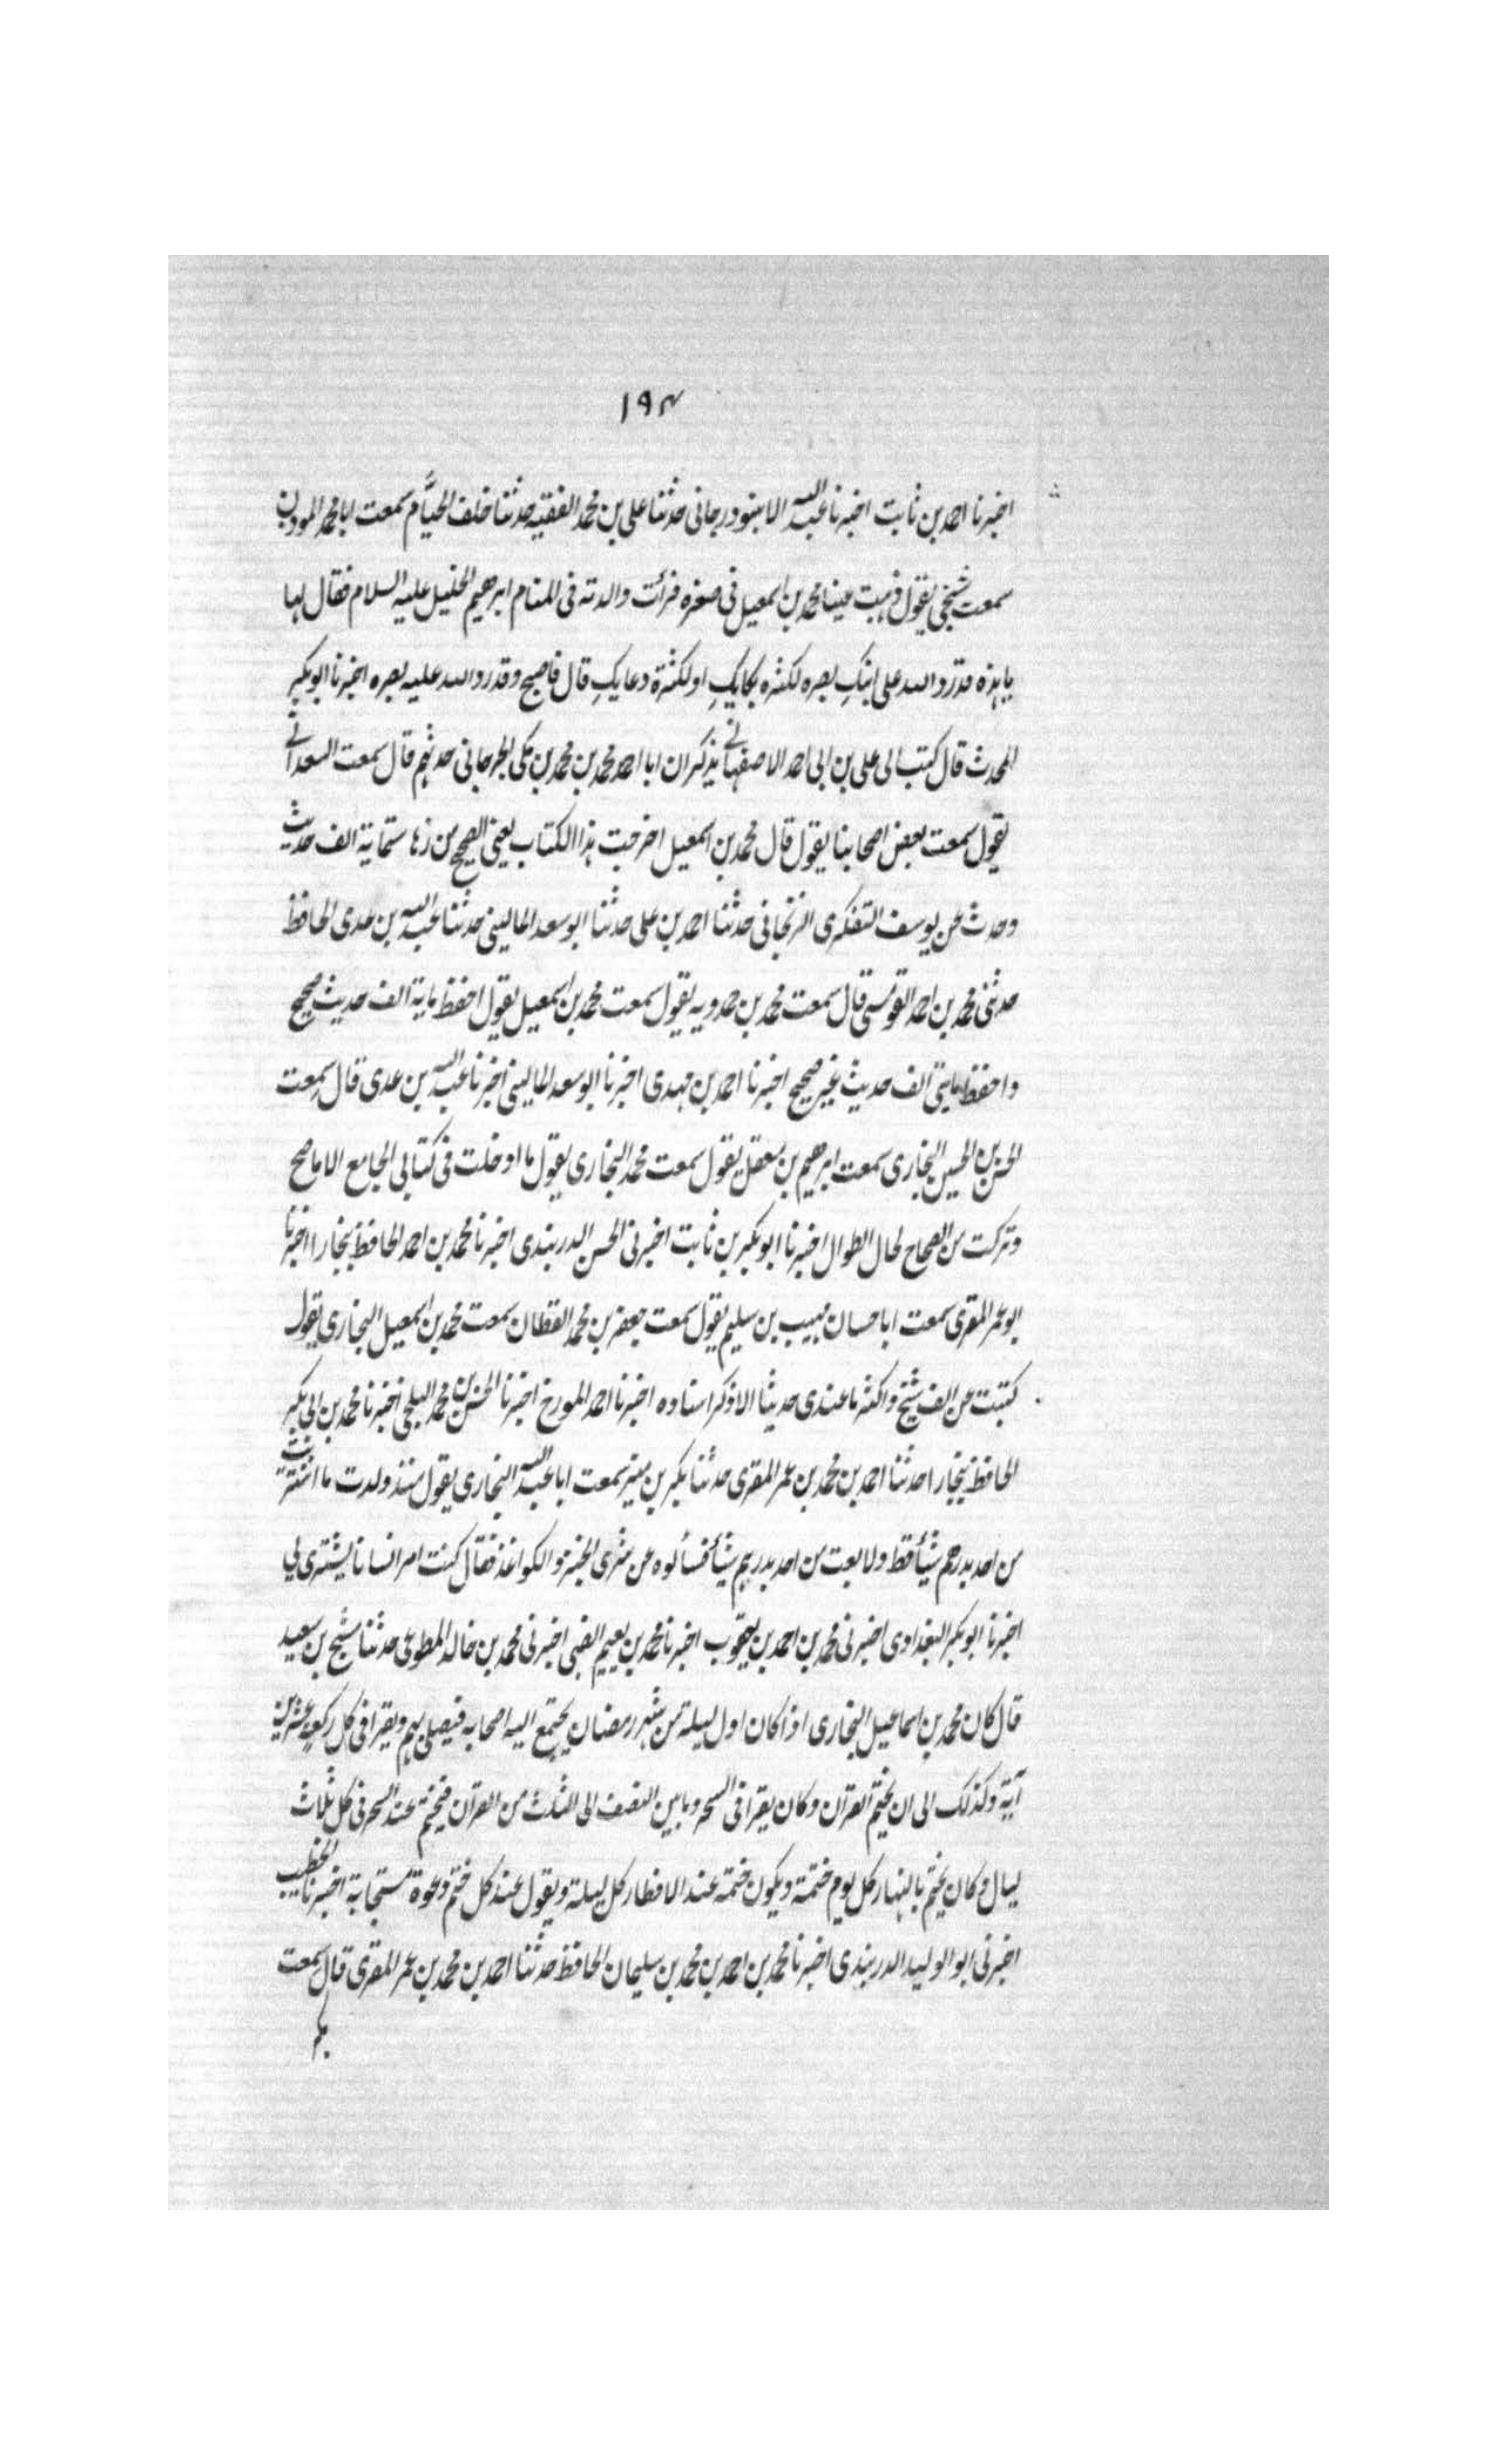 ١٩٤
اخبرنا احمد بن ثابت اخبرنا عبد الله الاستودرجانى حدثنا على بن محمد الفقيه حدثنا خلف الخيام سمعت ابا محمد الموذن
سمعت شيخى يقول ذهبت عينا محمد بن اسمعيل فى صغره فرأت والدته فى المنام ابرهيم الخليل عليه السلام فقال لها
يا هذه قد رد الله على ابنكِ بصره لكثرة بكايكِ او لكثرة دعايكِ قال فاصبح وقد رد الله عليه بصره اخبرنا ابو بكر
المحدث قال كتب الى على بن ابى احمد الاصفهانى يذكر ان ابا احمد محمد بن محمد بن مكى الجرجانى حدثهم قال سمعت السعدانى
يقول سمعت بعض اصحابنا يقول قال محمد بن اسمعيل اخرجت هذا الكتاب يعنى الصحيح من زها ستماية الف حديث
وحدث عن يوسف التفكرى الزنجانى حدثنا احمد بن على حدثنا ابو سعد المالينى حدثنا عبد الله بن عدى الحافظ
حدثنى محمد بن احمد القومسى قال سمعت محمد بن حمدويه يقول سمعت محمد بن اسمعيل يقول احفظ ماية الف حديث صحيح
واحفظ مايتى الف حديث غير صحيح اخبرنا احمد بن مهدى اخبرنا ابو سعد المالينى اخبرنا عبد الله بن عدى قال سمعت
الحسن بن الحسين البخارى سمعت ابرهيم بن معقل يقول سمعت محمد البخارى يقول ما ادخلت فى كتابى الجامع الا ما صح
وتركت من الصحاح لحال الطوال اخبرنا ابو بكر بن ثابت اخبرنى الحسن الدربندى اخبرنا محمد بن احمد الحافظ بخارا اخبرنا
ابو عمر المقرى سمعت ابا حسان مهيب بن سليم يقول سمعت جعفر بن محمد القطان سمعت محمد بن اسمعيل البخارى يقول
كتبت عن الف شيخ واكثر ما عندى حديثا الا اذكر اسناده اخبرنا احمد المورخ اخبرنا الحسن بن محمد البلخى اخبرنا محمد بن ابى بكر
الحافظ بخارا حدثنا احمد بن محمد بن عمر المقرى حدثنا بكر بن منير سمعت ابا عبد الله البخارى يقول منذ ولدت ما اشتريت
من احد بدرهم شيأ قط ولا بعت من احد بدرهم شيأ فسألوه عن شرى الخبز والكواغذ فقال كنت امر انسانا يشترى لى
اخبرنا ابو بكر البغدادى اخبرنى محمد بن احمد بن يعقوب اخبرنا محمد بن نعيم الضبى اخبرنى محمد بن خالد المطوعى حدثنا مسبح بن سعيد
قال كان محمد بن اسماعيل البخارى اذا كان اول ليلة من شهر رمضان يجتمع اليه اصحابه فيصلى بهم ويقرا فى كل ركعة عشرين
آية وكذلك الى ان يختم القرآن وكان يقرا فى السحر ما بين النصف الى الثلث من القرآن فيختم عند السحر فى كل ثلاث
ليال وكان يختم بالنهار كل يوم ختمة ويكون ختمه عند الافطار كل ليلة ويقول عند كل ختم دعوة مستجابة اخبرنا الخطيب
اخبرنى ابو الوليد الدربندى اخبرنا محمد بن احمد بن محمد بن سليمان الحافظ حدثنا احمد بن محمد بن عمر المقرى قال سمعت
بكر